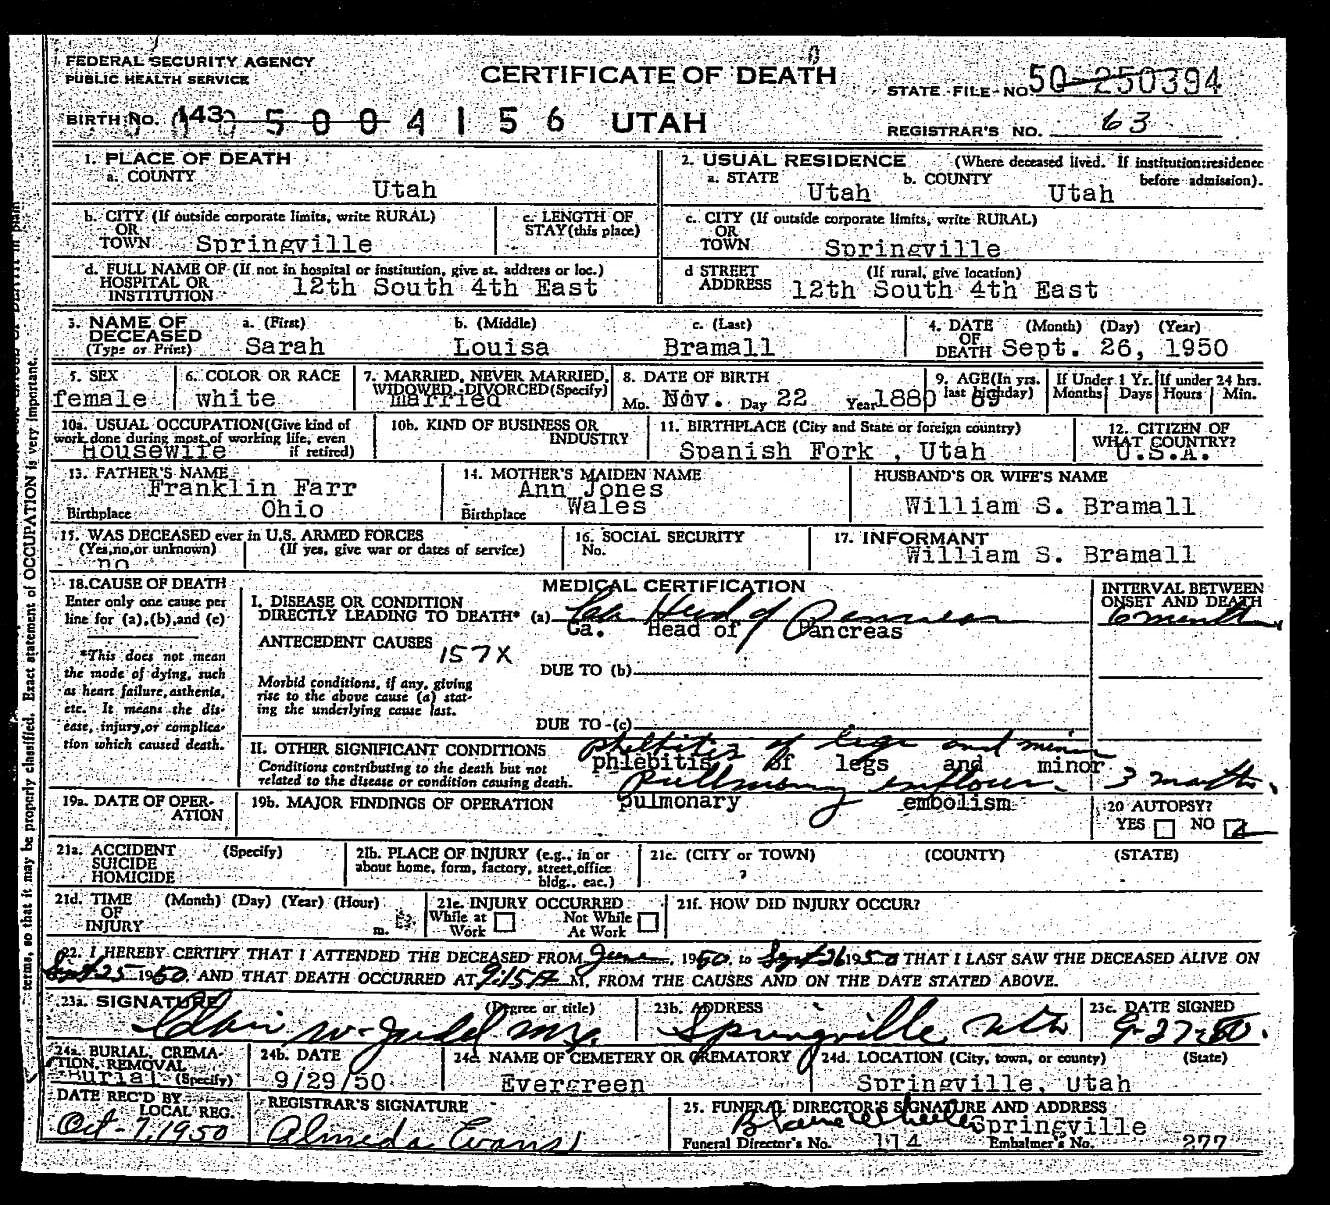 FEDERAL SECURITY AGENCY
PUBLIC HEALTH SERVICE
CERTIFICATE OF DEATH
STATE FILE NO. 50-250394
BIRTH NO. 143 5004156 UTAH
REGISTRAR'S NO. 63
1. PLACE OF DEATH
a. COUNTY Utah
2. USUAL RESIDENCE (Where deceased lived. If institution: residence before admission).
a. STATE Utah b. COUNTY Utah
b. CITY (If outside corporate limits, write RURAL) OR TOWN Springville
c. LENGTH OF STAY (this place)
c. CITY (If outside corporate limits, write RURAL) OR TOWN Springville
d. FULL NAME OF (If not in hospital or institution, give st. address or loc.) HOSPITAL OR INSTITUTION 12th South 4th East
d STREET ADDRESS (If rural, give location) 12th South 4th East
3. NAME OF DECEASED (Type or Print) a. (First) Sarah b. (Middle) Louisa c. (Last) Bramall
4. DATE OF DEATH (Month) (Day) (Year) Sept. 26, 1950
5. SEX female
6. COLOR OR RACE white
7. MARRIED, NEVER MARRIED, WIDOWED, DIVORCED (Specify) married
8. DATE OF BIRTH Mo. Nov. Day 22 Year 1880
9. AGE (In yrs. last birthday) 69
If Under 1 Yr. Months Days
If under 24 hrs. Hours Min.
10a. USUAL OCCUPATION (Give kind of work done during most of working life, even if retired) Housewife
10b. KIND OF BUSINESS OR INDUSTRY
11. BIRTHPLACE (City and State or foreign country) Spanish Fork , Utah
12. CITIZEN OF WHAT COUNTRY? U.S.A.
13. FATHER'S NAME Franklin Farr
Birthplace Ohio
14. MOTHER'S MAIDEN NAME Ann Jones
Birthplace Wales
HUSBAND'S OR WIFE'S NAME
William S. Bramall
15. WAS DECEASED ever in U.S. ARMED FORCES
(Yes, no, or unknown) (If yes, give war or dates of service)
no
16. SOCIAL SECURITY No.
17. INFORMANT
William S. Bramall
18. CAUSE OF DEATH
Enter only one cause per line for (a), (b), and (c)
*This does not mean the mode of dying, such as heart failure, asthenia, etc. It means the disease, injury, or complication which caused death.
MEDICAL CERTIFICATION
I. DISEASE OR CONDITION DIRECTLY LEADING TO DEATH* (a) Ca. Head of Pancreas
Ca. Head of Pancreas
ANTECEDENT CAUSES 157X
DUE TO (b)
Morbid conditions, if any, giving rise to the above cause (a) stating the underlying cause last.
DUE TO (c)
INTERVAL BETWEEN ONSET AND DEATH
6 months
II. OTHER SIGNIFICANT CONDITIONS
Conditions contributing to the death but not related to the disease or condition causing death.
phlebitis of legs and minor
phlebitis of legs and minor
pulmonary embolism
pulmonary embolism
3 months
19a. DATE OF OPERATION
19b. MAJOR FINDINGS OF OPERATION
20 AUTOPSY?
YES NO
21a. ACCIDENT SUICIDE HOMICIDE (Specify)
21b. PLACE OF INJURY (e.g., in or about home, form, factory, street, office bldg., eac.)
21c. (CITY or TOWN) (COUNTY) (STATE)
21d. TIME OF INJURY (Month) (Day) (Year) (Hour) m.
21e. INJURY OCCURRED
While at Work Not While At Work
21f. HOW DID INJURY OCCUR?
22. I HEREBY CERTIFY THAT I ATTENDED THE DECEASED FROM June, 1950, to Sept 26 1950 THAT I LAST SAW THE DECEASED ALIVE ON
Sept 25 1950, AND THAT DEATH OCCURRED AT 9:15 M, FROM THE CAUSES AND ON THE DATE STATED ABOVE.
23a. SIGNATURE (Degree or title)
23b. ADDRESS Springville Utah
23c. DATE SIGNED 9-27-50.
24a. BURIAL, CREMATION, REMOVAL (Specify) Burial
24b. DATE 9/29/50
24c. NAME OF CEMETERY OR CREMATORY Evergreen
24d. LOCATION (City, town, or county) (State) Springville, Utah
DATE REC'D BY LOCAL REG. Oct-7, 1950
REGISTRAR'S SIGNATURE
Almeda Evans
25. FUNERAL DIRECTOR'S SIGNATURE AND ADDRESS
Springville
Funeral Director's No. 114 Embalmer's No. 277
terms, so that it may be properly classified. Exact statement of OCCUPATION is very important.